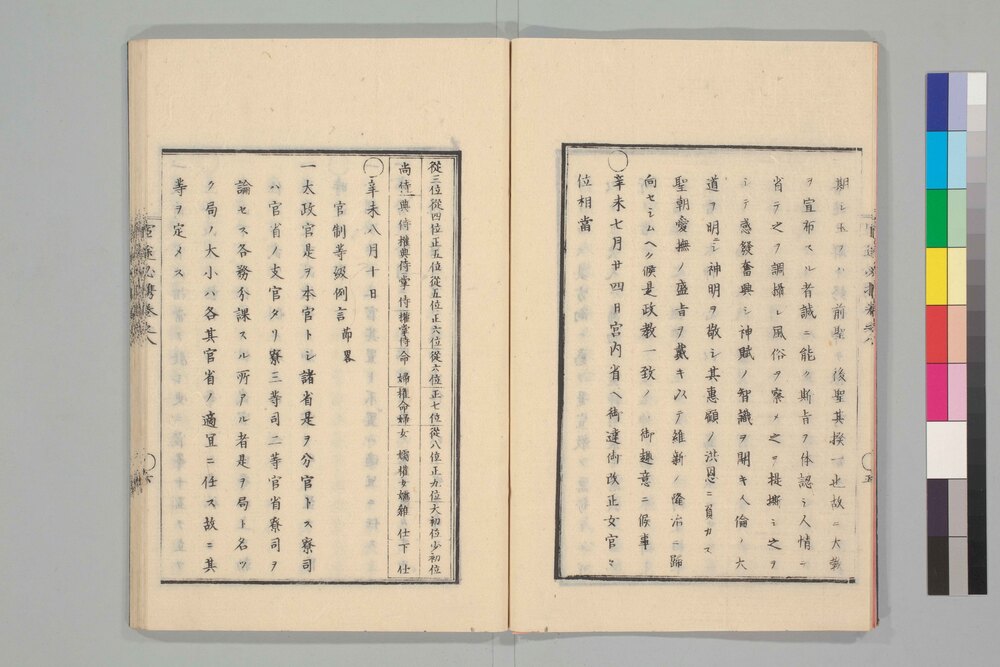 期シ玉フ所前聖ト後聖其揆一也故ニ大教
ヲ宣布スル者誠ニ能ク斯旨ヲ体認シ人情ニ
省テ之ヲ調攝シ風俗ヲ察メ之ヲ提撕シ之ヲ
シテ感發奮興シ神賦ノ智識ヲ開キ人倫ノ大
道ヲ明ニシ神明ヲ敬シ其惠顧ノ洪恩ニ負カス
聖朝愛撫ノ盛旨ヲ戴キ以テ維新ノ隆治ニ歸
向セシムヘク候是政教一致ノ御趣意ニ候事
○辛未七月廿四日宮内省ヘ御達御改正女官々
位相當
從三位從四位正五位從五位正六位從六位正七位從八位正九位大初位少初位
尚侍典侍權典侍掌侍權掌侍命婦權命婦女嬬權女嬬雜仕下仕
○辛未八月十日
官制等級例言節畧
一太政官是ヲ本官トシ諸省是ヲ分官トス寮司
ハ官省ノ支官タリ寮三等司二等官省寮司ヲ
論セス各務分課スル所アル者是ヲ局ト名ツ
ク局ノ大小ハ各其官省ノ適宜ニ任ス故ニ其
等ヲ定メス